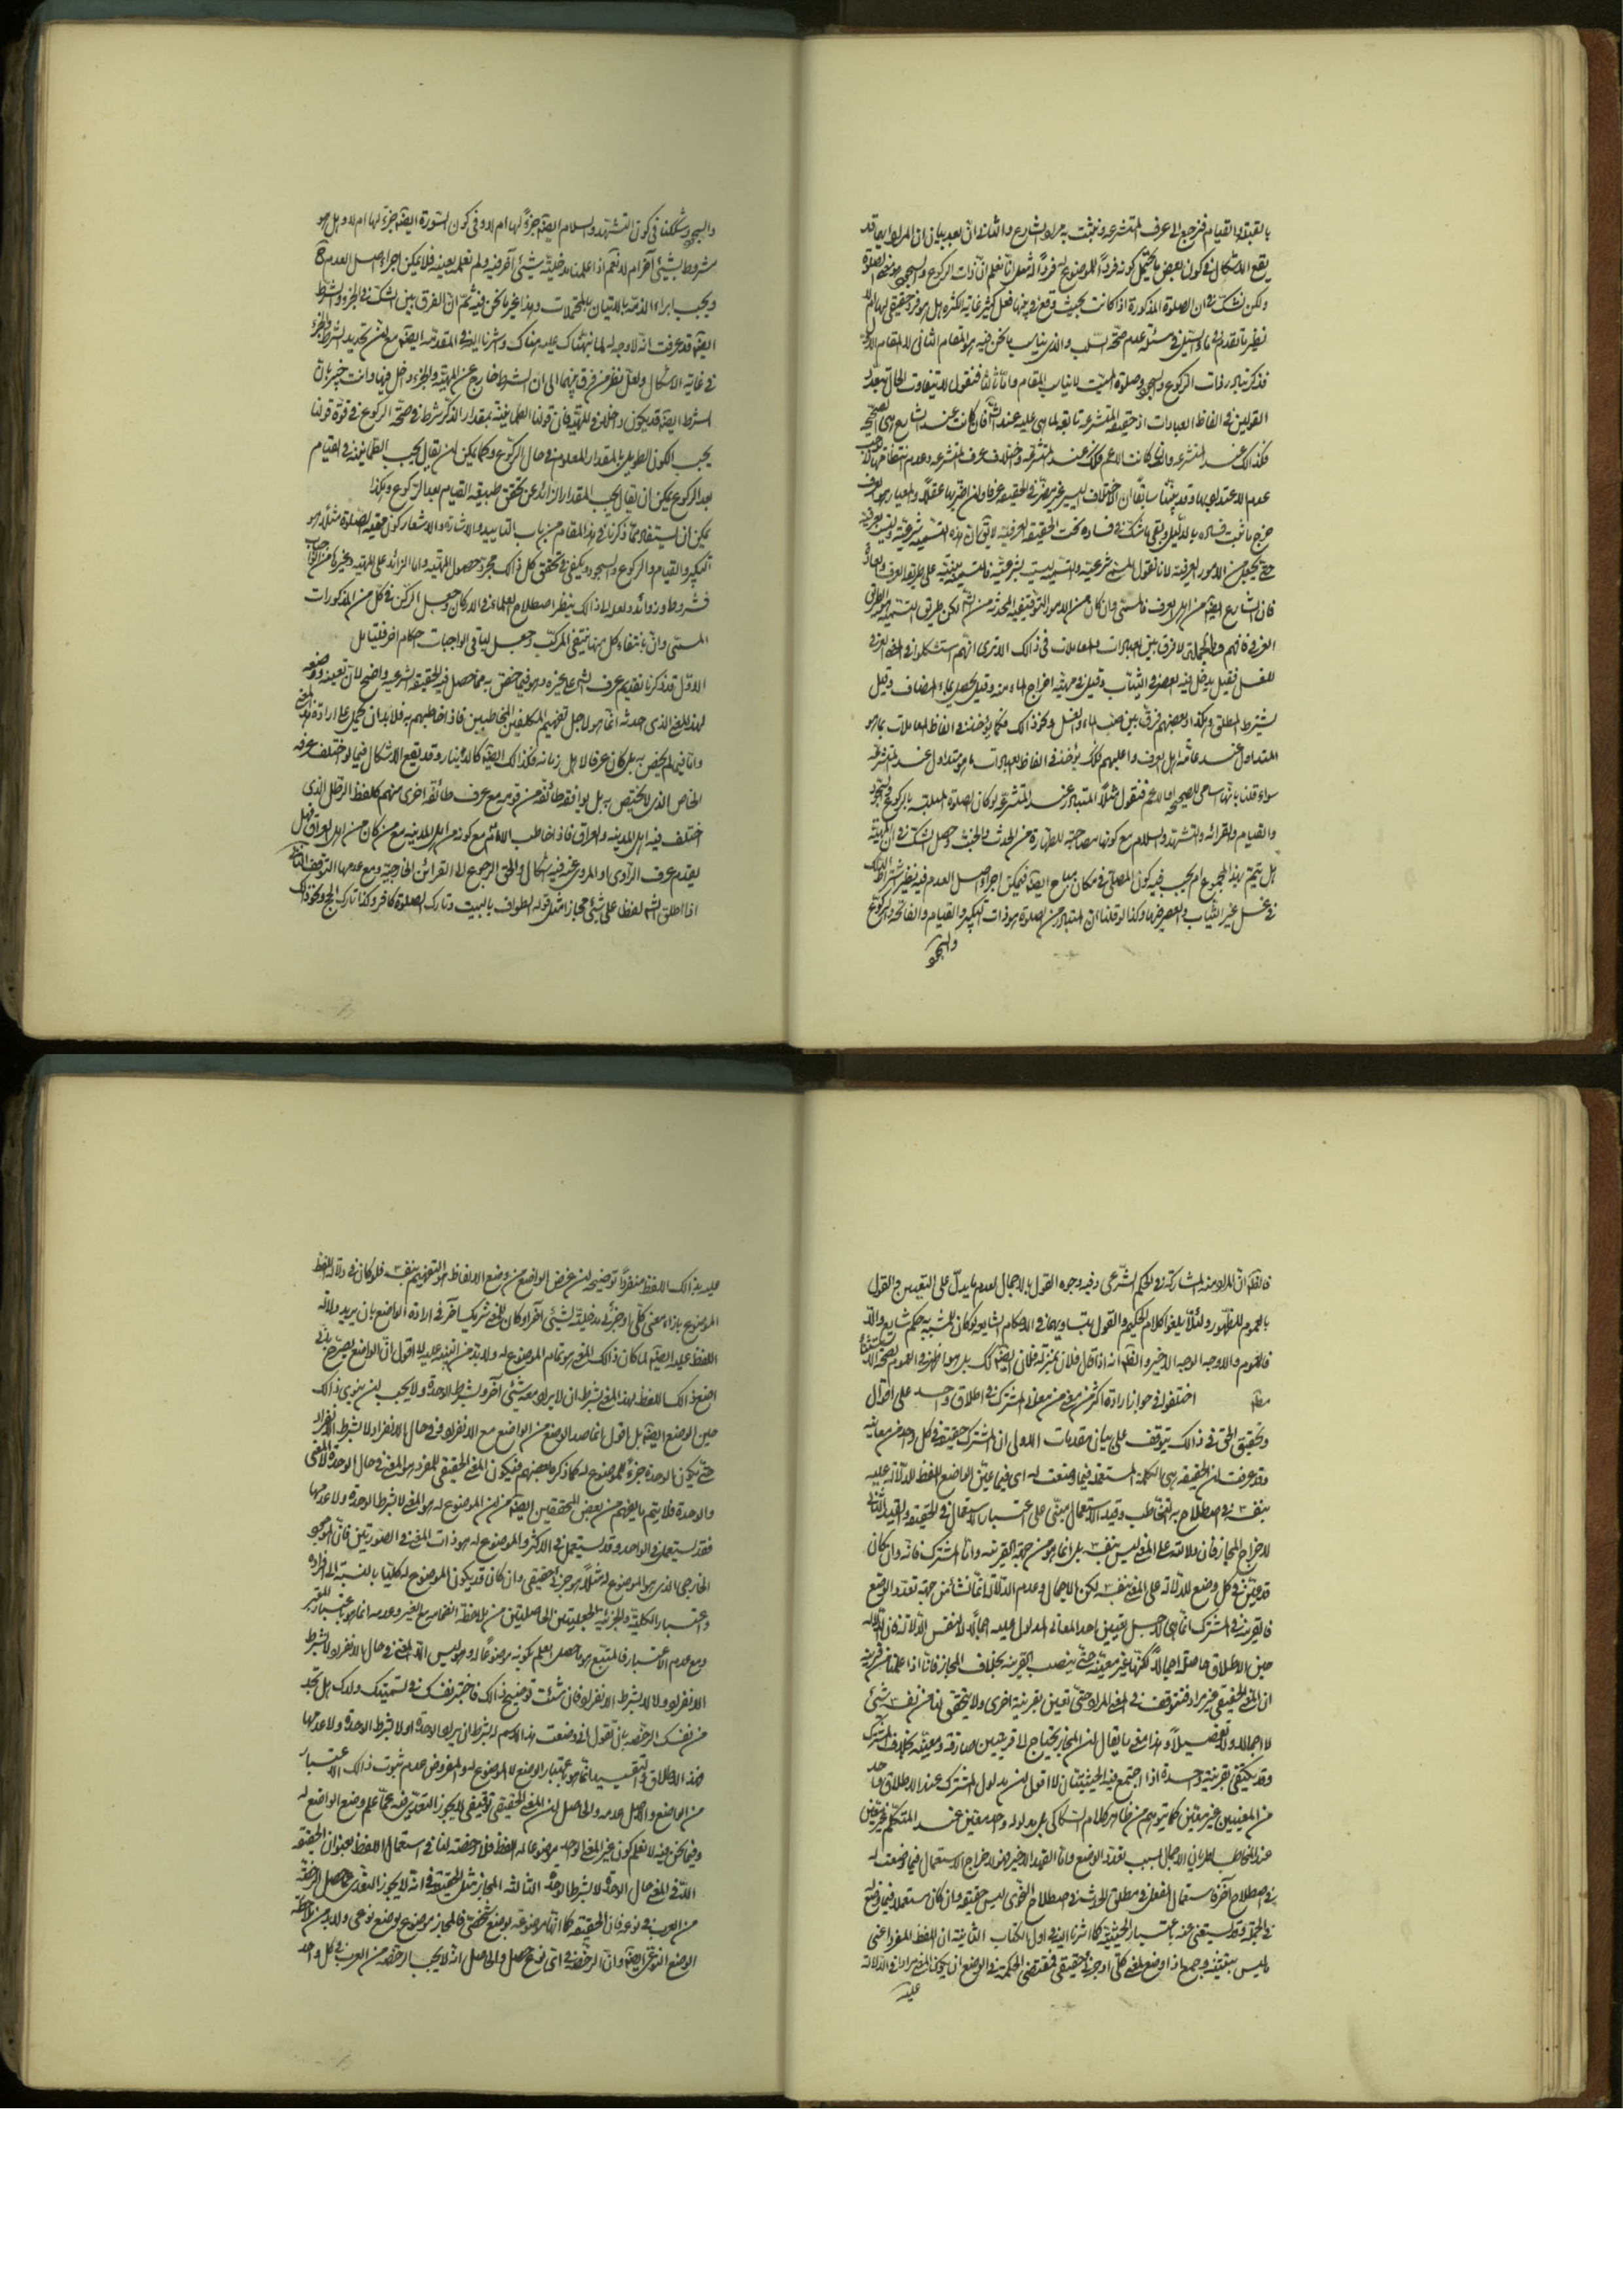 بالقبلة والقيام فنرجع الى عرف المتشرعة ونثبت به مراد الشارع والثاني ان بعد بيان ان المراد بها قد
يقع الاشكال في كون بعض ما يحتمل كونه فردا للموضوع له فردا له مثل انا نعلم ان ذات الركوع والسجود هو معنى الصلوة
ولكن نشك في ان الصلوة المذكورة اذا كانت بحيث وقع في بينها فعل كثير غاية الكثرة هل هو فرد حقيقي لها ام لا
نظير ما تقدم في ماء السيل في مسئلة عدم صحة السلب والذي يناسب ما نحن فيه هو المقام الثاني لا المقام الاول
فذكر تبادر ذات الركوع والسجود وصلوة الميت لا يناسب المقام واما ثالثا فنقول لا يتفاوت الحال بتعدد
القولين في الفاظ العبادات اذ حقيقة المتشرعة تابعة لما هي عليه عند الشارع فان كانت عند الشارع هي الصحيحة
فكذلك عند المتشرعة وان كانت الاعم فكذلك عند المتشرعة واختلاف عرف المتشرعة وعدم انتظامها
عدم الاعتداد بها وقد بينا سابقا ان الاختلاف اليسير غير مضر في الحقيقة عرفا وان اضر بها عقلا والمعيار هو العرف
خرج ما ثبت فساده بالدليل وبقي ما شك في فساده تحت الحقيقة العرفية لا يقال ان هذه التسمية شرعية وليست بعرفية
حتى يجعل من الامور العرفية لانا نقول المسمى شرعية والتسمية ليست بشرعية فالتسمية مبنية على طريقة العرف والعادة
فان الشارع ايضا من اهل العرف فالمسمى وان كان من الامور التوقيفية المحدثة من الشرع لكن طريق التسمية هو الطريق
العرفي فافهم وبالجملة لا فرق بين العبادات والمعاملات في ذلك الا ترى انهم استشكلوا في المعنى العرفي
للغسل فقيل يدخل فيه العصر في الثياب وقيل في مهيته اخراج الماء منه وقيل يحصل بماء المضاف وقيل
يشترط المطلق وهكذا وبعضهم فرق بين صب الماء والغسل ونحو ذلك فكما يؤخذ في الفاظ المعاملات بما هو
المتداول عند عامة اهل العرف واغلبهم فكذلك يؤخذ في الفاظ العبادات ما هو متداول عند المتشرعة
سواء قلنا بانها اسامي للصحيحة او للاعم فنقول مثلا المتبادر عند المتشرعة لو كان الصلوة المتلبسة بالركوع والسجود
والقيام والقرائة والتشهد والسلام مع كونها مصاحبة للطهارة من الحدث والخبث وحصل الشك في ان المهية
هل يتم بهذا المجموع ام يجب فيه كون المصلي في مكان مباح ايضا فيمكن اجراء اصل العدم فيه نظير اشتراط الدلك
في غسل غير الثياب والعصر فيها وكذا لو قلنا ان المتبادر من الصلوة هو ذات التكبير والقيام والفاتحة والركوع
والسجود
والسجود وشككنا في كون التشهد والسلام ايضا جزء لها ام لا وفي كون السورة ايضا جزء لها ام لا وهل هو
مشروط بشيء آخر ام لا نعم اذا علمنا مدخلية شيء آخر فيه ولم نعلمه بعينه فلا يمكن اجراء اصل العدم ح
ويجب ابراء الذمة بالاتيان بالمحتملات وهذا غير ما نحن فيه ثم ان الفرق بين الشك في الجزء والشرط
ايضا قد عرفت انه لا وجه له لما نبهناك عليه هناك واشرنا اليه في المقدمة ايضا مع ان تحديد الشرط والجزء
في غاية الاشكال ولعل نظر من فرق بينهما الى ان الشرط خارج عن المهية والجزء داخل فيها وانت خبير بان
الشرط ايضا قد يكون داخلا في المهية فان قولنا الطمأنينة بمقدار الذكر شرط في صحة الركوع في قوة قولنا
يجب الكون الطويل بالمقدار المعلوم في حال الركوع وكما يمكن ان يقال يجب الطمأنينة في القيام
بعد الركوع يمكن ان يقال يجب المقدار الزائد عن تحقق طبيعة القيام بعد الركوع وهكذا
يمكن ان يستفاد مما ذكرنا في هذا المقام من باب التاييد والاشارة والاشعار كون حقيقة الصلوة مثلا هو
التكبير والقيام والركوع والسجود ويكفي في تحقق كل ذلك مجرد حصول المهية واما الزائد على المهية وغيرها من الواجبات
فشروط وزوائد ولعله الى ذلك ينظر اصطلاح العلماء في الاركان وجعل الركن في كل من المذكورات
المسمى وان بانتفاء كل منها ينتفي المركب وجعل لباقي الواجبات احكام اخر فليتامل
الاول قد ذكرنا تقديم عرف الشرع على غيره وهو فيما اختص به مما حصل فيه الحقيقة الشرعية واضح لان تعيينه ووضعه
لهذا المعنى الذي احدثه انما هو لاجل تفهيم المكلفين المخاطبين فاذا خاطبهم به فلا بد ان يحمل على ارادة هذا المعنى
واما فيما لم يختص به بل كان عرفا لاهل زمانه فكذلك ايضا كالدينار وقد يقع الاشكال فيما لو اختلف عرفه
الخاص الذي لا يختص به بل يوافقه طائفة من قومه مع عرف طائفة اخرى منهم كلفظ الرطل الذي
اختلف فيه اهل المدينة والعراق فاذا خاطب الامام مع كونه من اهل المدينة مع من كان من اهل العراق فهل
يقدم عرف الراوي او المروي عنه فيه اشكال والحق الرجوع الى القرائن الخارجية ومع عدمها التوقف الثاني
اذا اطلق الشارع لفظا على شيء مجازا مثل قوله الطواف بالبيت وتارك الصلوة كافر وكذا تارك الحج ونحو ذلك
فالظاهر ان المراد منه المشاركة في الحكم الشرعي وفيه وجوه القول بالاجمال لعدم ما يدل على التعيين والقول
بالعموم للظهور ولئلا يلغو كلام الحكيم والقول بتساويهما في الاحكام الشايعة لو كان للمشبه به حكم شايع والا
فالعموم والاوجه الوجه الاخير والظاهر انه اذا قال فلان بمنزلة فلان ايضا كذلك بل هو اظهر في العموم لصحة الاستثناء
اختلفوا في جواز ارادة اكثر من معنى من معاني المشترك في اطلاق واحد على اقوال
وتحقيق الحق في ذلك يتوقف على بيان مقدمات الاولى ان المشترك حقيقة في كل واحد من معانيه
وقد عرفت ان الحقيقة هي الكلمة المستعملة فيما وضعت له اي فيما عين الواضع اللفظ للدلالة عليه
بنفسه في اصطلاح به التخاطب وقيد الاستعمال مبني على اعتبار الاستعمال في الحقيقة والقيد الثاني
لاخراج المجاز فان دلالته على المعنى ليس بنفسه بل انما هو من جهة القرينة واما المشترك فانه وان كان
قد عين في كل وضع للدلالة على المعنى بنفسه لكن الاجمال وعدم الدلالة انما نشأ من جهة تعدد الوضع
فالقرينة في المشترك انما هي لاجل تعيين احد المعاني المدلول عليه اجمالا لا لنفس الدلالة فان الدلالة
حين الاطلاق حاصلة اجمالا لكنها غير معينة حتى ينصب القرينة بخلاف المجاز فانا اذا علمنا من قرينة
ان المعنى الحقيقي غير مراد فنتوقف في المعنى المراد حتى تعين بقرينة اخرى ولا يتحقق لنا من نفسه شيء
لا اجمالا ولا تفصيلا وهذا معنى ما يقال ان المجاز يحتاج الى قرينتين صارفة ومعينة بخلاف المشترك
وقد يكتفى بقرينة واحدة اذا اجتمع فيه الحيثيتان لا اقول ان مدلول المشترك عند الاطلاق واحد
من المعنيين غير معين كما يتوهم من ظاهر كلام السكاكي بل مدلوله واحد معين عند المتكلم غير معين
عند المخاطب لطريان الاجمال بسبب تعدد الوضع واما القيد الاخير فهو لاخراج الاستعمال فيما وضعت له
في اصطلاح آخر فاستعمال الفعل في مطلق الحدث في اصطلاح النحوي ليس حقيقة وان كان مستعملا فيما وضع له
في الجملة وقد يستغنى عنه باعتبار الحيثية كما اشرنا اليه في اول الكتاب الثانية ان اللفظ المفرد اعني
ما ليس بتثنية وجمع اذا وضع لمعنى كلي او جزئي حقيقي فمقتضى الحكمة في الوضع ان يكون المعنى مرادا في الدلالة
عليه
عليه بذلك اللفظ منفردا توضيحه ان غرض الواضع من وضع الالفاظ هو التفهيم بنفسه فلو كان في دلالة اللفظ
الموضوع بازاء معنى كلي او جزئي مدخلية لشيء آخر او كان للمعنى شريك آخر في ارادة الواضع بان يريد دلالة
اللفظ عليه ايضا لما كان ذلك المعنى هو تمام الموضوع له ولا بد من التنبيه عليه لا اقول ان الواضع يصرح باني
اضع ذلك اللفظ بهذا المعنى بشرط ان لا يراد معه شيء آخر وبشرط الوحدة ولا يجب ان ينوي ذلك
حين الوضع ايضا بل اقول انما صدر الوضع من الواضع مع الانفراد وفي حال الانفراد لا بشرط الانفراد
حتى يكون الوحدة جزء للموضوع له كما ذكره بعضهم فيكون المعنى الحقيقي للمفرد هو المعنى في حال الوحدة لا المعنى
والوحدة فلا يتم ما يفهم من بعض المحققين ايضا من ان الموضوع له هو المعنى لا بشرط الوحدة ولا عدمها
فقد يستعمل في الواحد وقد يستعمل في الاكثر والموضوع له هو ذات المعنى في الصورتين فان الموجود
الخارجي الذي هو الموضوع له مثلا هو جزئي حقيقي وان كان قد يكون الموضوع له كليا بالنسبة الى افراده
واعتبار الكلية والجزئية الجعليتين الحاصلتين من ملاحظة انضمامه مع الغير وعدمه انما هو باعتبار المعتبر
ومع عدم الاعتبار فالمتبع هو ما حصل العلم بكونه موضوعا له وهو ليس الا المعنى في حال الانفراد لا بشرط
الانفراد ولا لا بشرط الانفراد فان شئت توضيح ذلك فاختبر نفسك في تسميتك ولدك هل تجد
من نفسك الرخصة بان تقول اني وضعت هذا الاسم له بشرط ان يراد الوحدة او لا بشرط الوحدة ولا عدمها
فهذا الاطلاق والتقييد انما هو باعتبار الوضع لا الموضوع له والمفروض عدم ثبوت ذلك الاعتبار
من الواضع والاصل عدمه والحاصل ان المعنى الحقيقي توقيفي لا يجوز التعدي فيه عما علم وضع الواضع له
وفيما نحن فيه لا نعلم كون غير المعنى الواحد موضوعا له اللفظ فلا رخصة لنا في استعمال اللفظ بعنوان الحقيقة
الا في المعنى حال الوحدة لا بشرط الوحدة الثالثة المجاز مثل الحقيقة في انه لا يجوز التعدي عما حصل الرخصة
من العرب في نوعه فان الحقيقة كما انها موضوعة بوضع شخصي فالمجاز موضوع بوضع نوعي ولا بد من ملاحظة
الوضع النوعي ايضا وان الرخصة في اي نوع حصل والحاصل انه لا يجب الرخصة من العرب في كل واحد